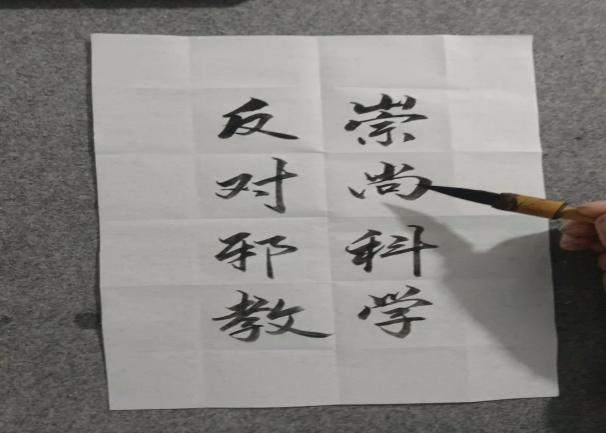 崇尚科学
反对邪教